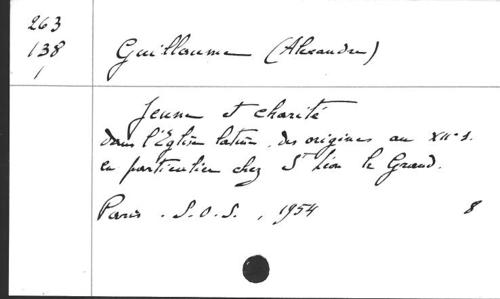 263
138
1
Guillaume (Alexandre)
Jeune et charité
dans l'Eglise latine, des origines au XIIe s.
en particulier chez St Léon le Grand.
Paris. S.O.S., 1954 8